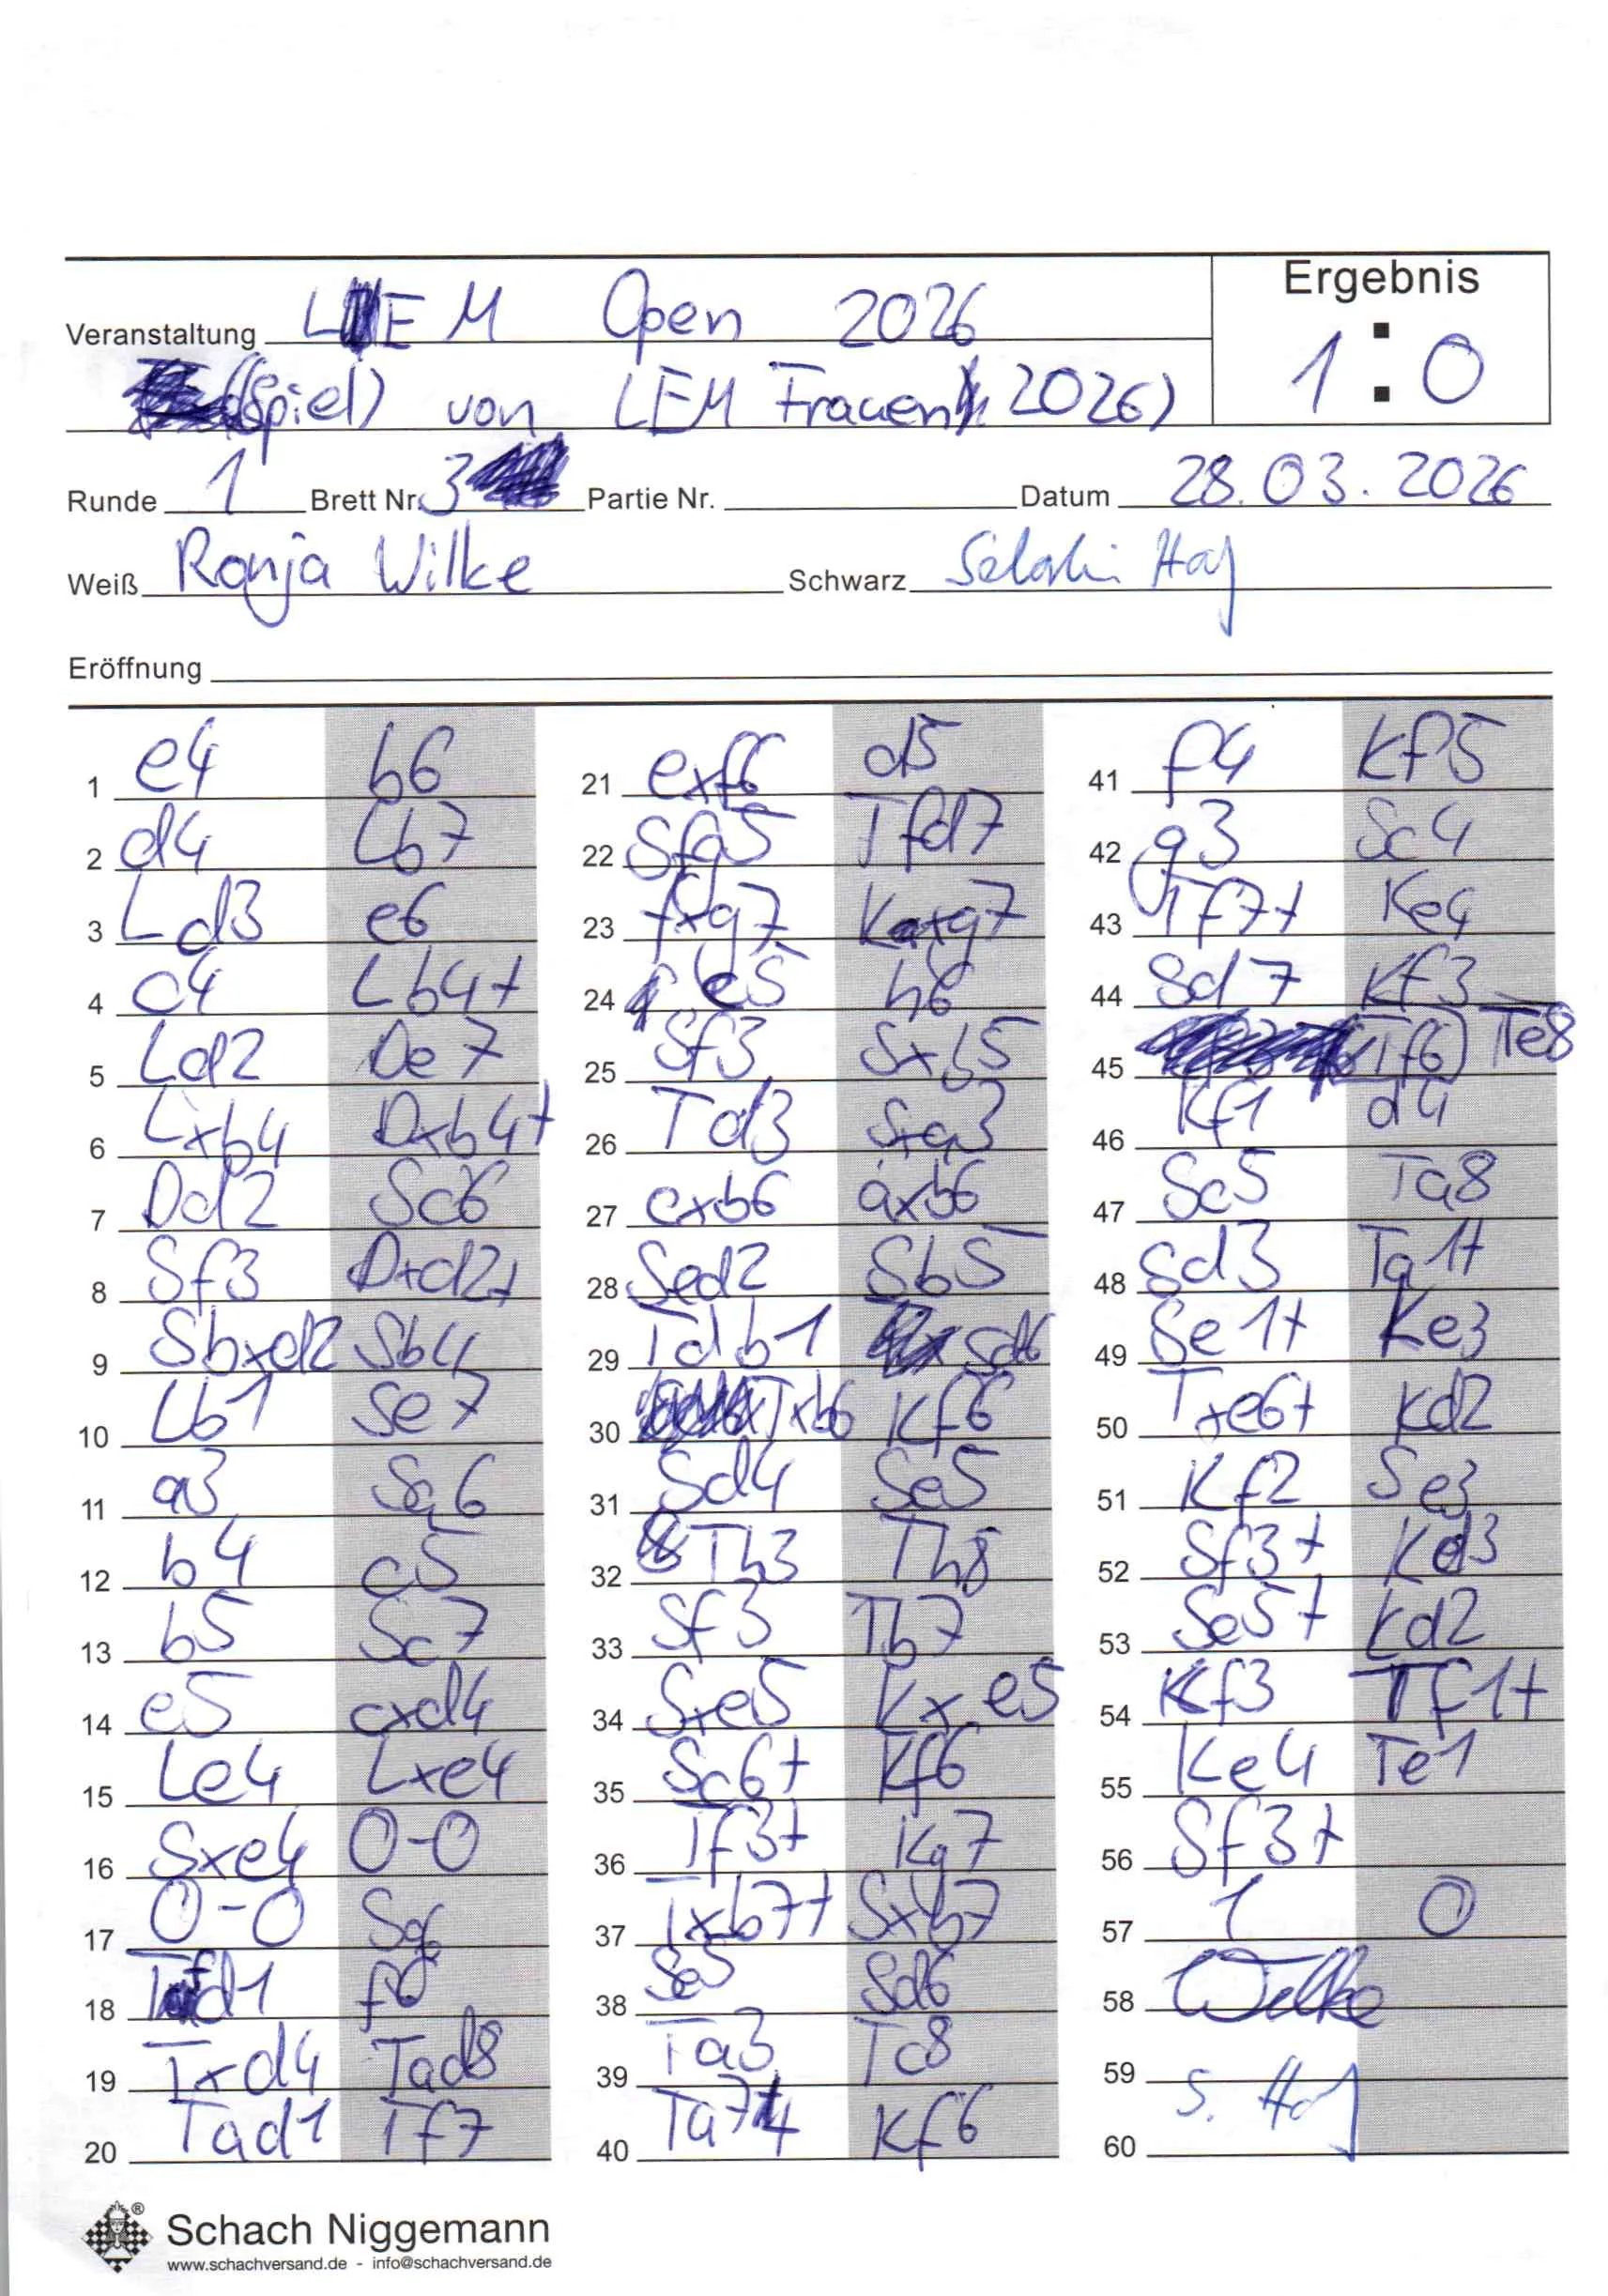 Veranstaltung LEM Open 2026
Ergebnis
1 : 0
(Spiel) von LEM Frauen 2026)
Runde 1 Brett Nr. 3 Partie Nr. Datum 28.03.2026
Weiß Ronja Wilke Schwarz
Eröffnung
1 e4 b6
2 d4 Lb7
3 Ld3 e6
4 c4 Lb4+
5 Ld2 De7
6 Lxb4 Dxb4+
7 Dd2 Sc6
8 Sf3 Dxd2+
9 Sbxd2 Sb4
10 Lb1 Se7
11 a3 Sa6
12 b4 c5
13 b5 Sc7
14 e5 cxd4
15 Le4 Lxe4
16 Sxe4 0-0
17 0-0 Sg6
18 Tfd1 f6
19 Txd4 Tad8
20 Tad1 Tf7
21 exf6 d5
22 Sfg5 Tfd7
23 fxg7 Kxg7
24 c5 h6
25 Sf3 Sxb5
26 Td3 Sxa3
27 cxb6 axb6
28 Sed2 Sb5
29 Tdb1 Sd6
30 Txb6 Kf6
31 Sd4 Se5
32 Th3 Th8
33 Sf3 Tb7
34 Sxe5 Kxe5
35 Sc6+ Kf6
36 Tf3+ Kg7
37 Txb7+ Sxb7
38 Se5 Sd6
39 Ta3 Tc8
40 Ta7+ Kf6
41 f4 Kf5
42 g3 Sc4
43 Tf7+ Ke4
44 Sd7 Kf3
45 (Tf6) Te8
46 Kf1 d4
47 Sc5 Ta8
48 Sd3 Ta1+
49 Se1+ Ke3
50 Txe6+ Kd2
51 Kf2 Se3
52 Sf3+ Kd3
53 Se5+ Kd2
54 Kf3 Tf1+
55 Ke4 Te1
56 Sf3+
57 1 0
58 Wilke
59 S.
60
Schach Niggemann
www.schachversand.de - info@schachversand.de